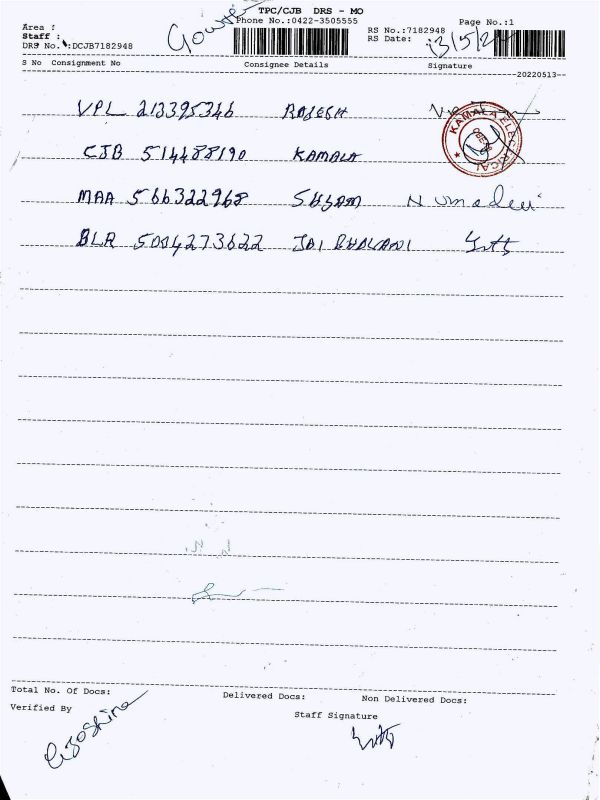 TPC/CJB DRS - MO
Gowse
Phone No.:0422-3505555
Page No.:1
Area :
RS No.:7182948
Staff :
RS Date: 13/5/22
DRS No. :DCJB7182948
S No Consignment No Consignee Details Signature
--20220513--
VPL 213395346 RAJESH
CJB 514488190 KAMALA
KAMALA ELECTRICAL
MAA 566322968 SHYAM
BLR 5004273622 JAI BHAVANI
Total No. Of Docs: Delivered Docs: Non Delivered Docs:
Verified By
Staff Signature